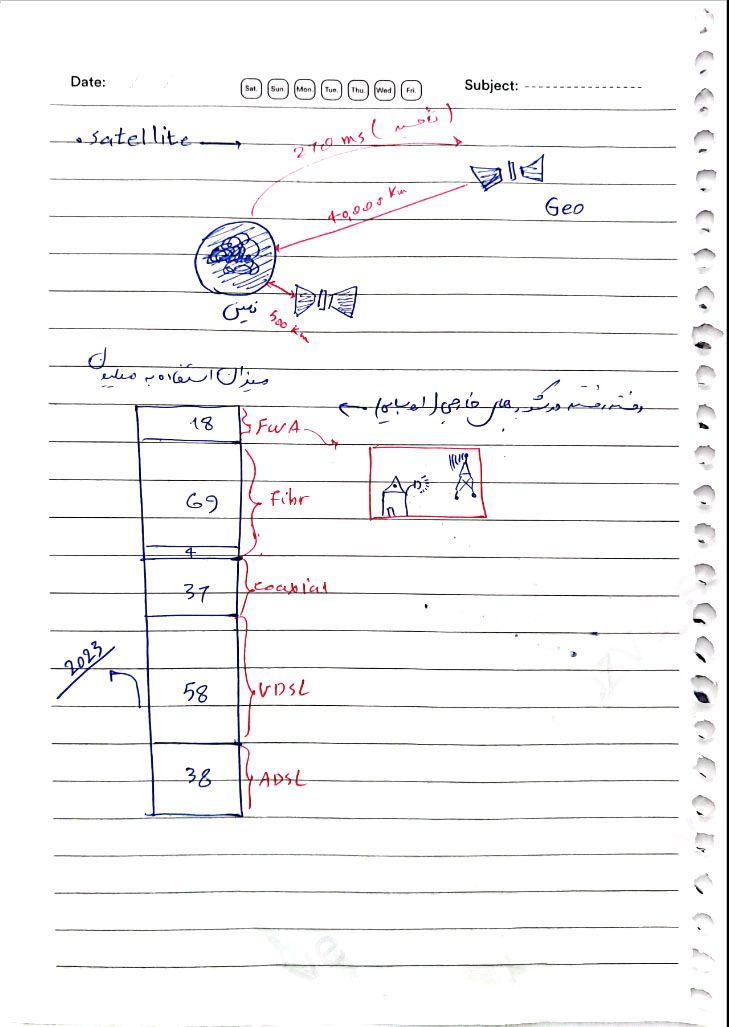 Date:
Sat. Sun Mon. Tue. Thu. Wed Fri.
Subject:
. satellite →
270 ms (تأخیر)
40,000 Km
Geo
زمین
500 Km
میزان استفاده به میلیون
رفته رفته در کشور های خارجی (اروپایی) ←
18 FWA
69 Fibr
4
37 coaxial
2023
58 VDSL
38 ADSL